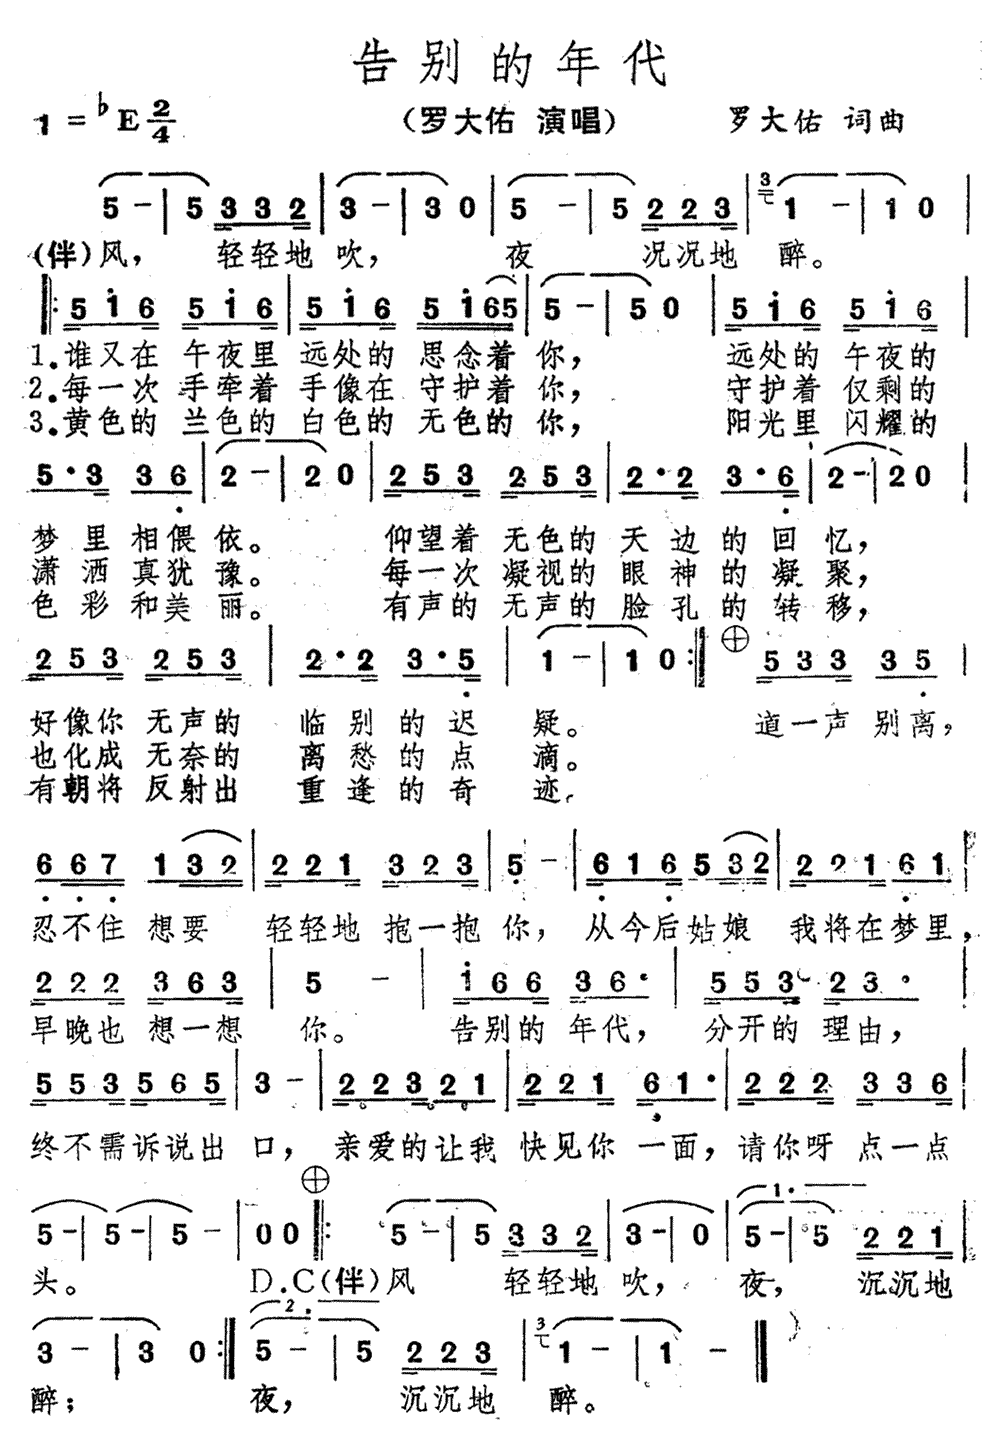 告别的年代
1=♭E 2/4 （罗大佑 演唱） 罗大佑 词曲
5 - | 5 3 3 2 | 3 - | 3 0 | 5 - | 5 2 2 3 | 1 - | 1 0 |
(伴)风， 轻轻地 吹， 夜 况况地 醉。
5 1 6 5 1 6 | 5 1 6 5 1 65 | 5 - | 5 0 | 5 1 6 5 1 6 |
1.谁又在 午夜里 远处的 思念着 你， 远处的 午夜的
2.每一次 手牵着 手像在 守护着 你， 守护着 仅剩的
3.黄色的 兰色的 白色的 无色的 你， 阳光里 闪耀的
5·3 3 6 | 2 - | 2 0 | 2 5 3 2 5 3 | 2·2 3·6 | 2 - | 2 0 |
梦里相偎依。 仰望着 无色的 天边的回忆，
潇洒真犹豫。 每一次 凝视的 眼神的凝聚，
色彩和美丽。 有声的 无声的 脸孔的转移，
2 5 3 2 5 3 | 2·2 3·5 | 1 - | 1 0 :| 5 3 3 3 5 |
好像你 无声的 临别的迟疑。 道一声 别离，
也化成 无奈的 离愁的点滴。
有朝将 反射出 重逢的奇迹
6 6 7 1 3 2 | 2 2 1 3 2 3 | 5 - | 6 1 6 5 3 2 | 2 2 1 6 1 |
忍不住 想要 轻轻地 抱一抱 你， 从今后姑娘 我将在梦里，
2 2 2 3 6 3 | 5 - | 1 6 6 3 6· | 5 5 3 2 3· |
早晚也 想一想 你。 告别的 年代， 分开的 理由，
5 5 3 5 6 5 | 3 - | 2 2 3 2 1 | 2 2 1 6 1· | 2 2 2 3 3 6 |
终不需诉说出 口， 亲爱的让我 快见你 一面，请你呀 点一点
5 - | 5 - | 5 - | 0 0 :| 5 - | 5 3 3 2 | 3 - | 0 | 5 - | 5 2 2 1 |
头。 D.C(伴)风 轻轻地 吹， 夜， 沉沉地
3 - | 3 0 :| 5 - | 5 2 2 3 | 1 - | 1 - ‖
醉； 夜， 沉沉地 醉。